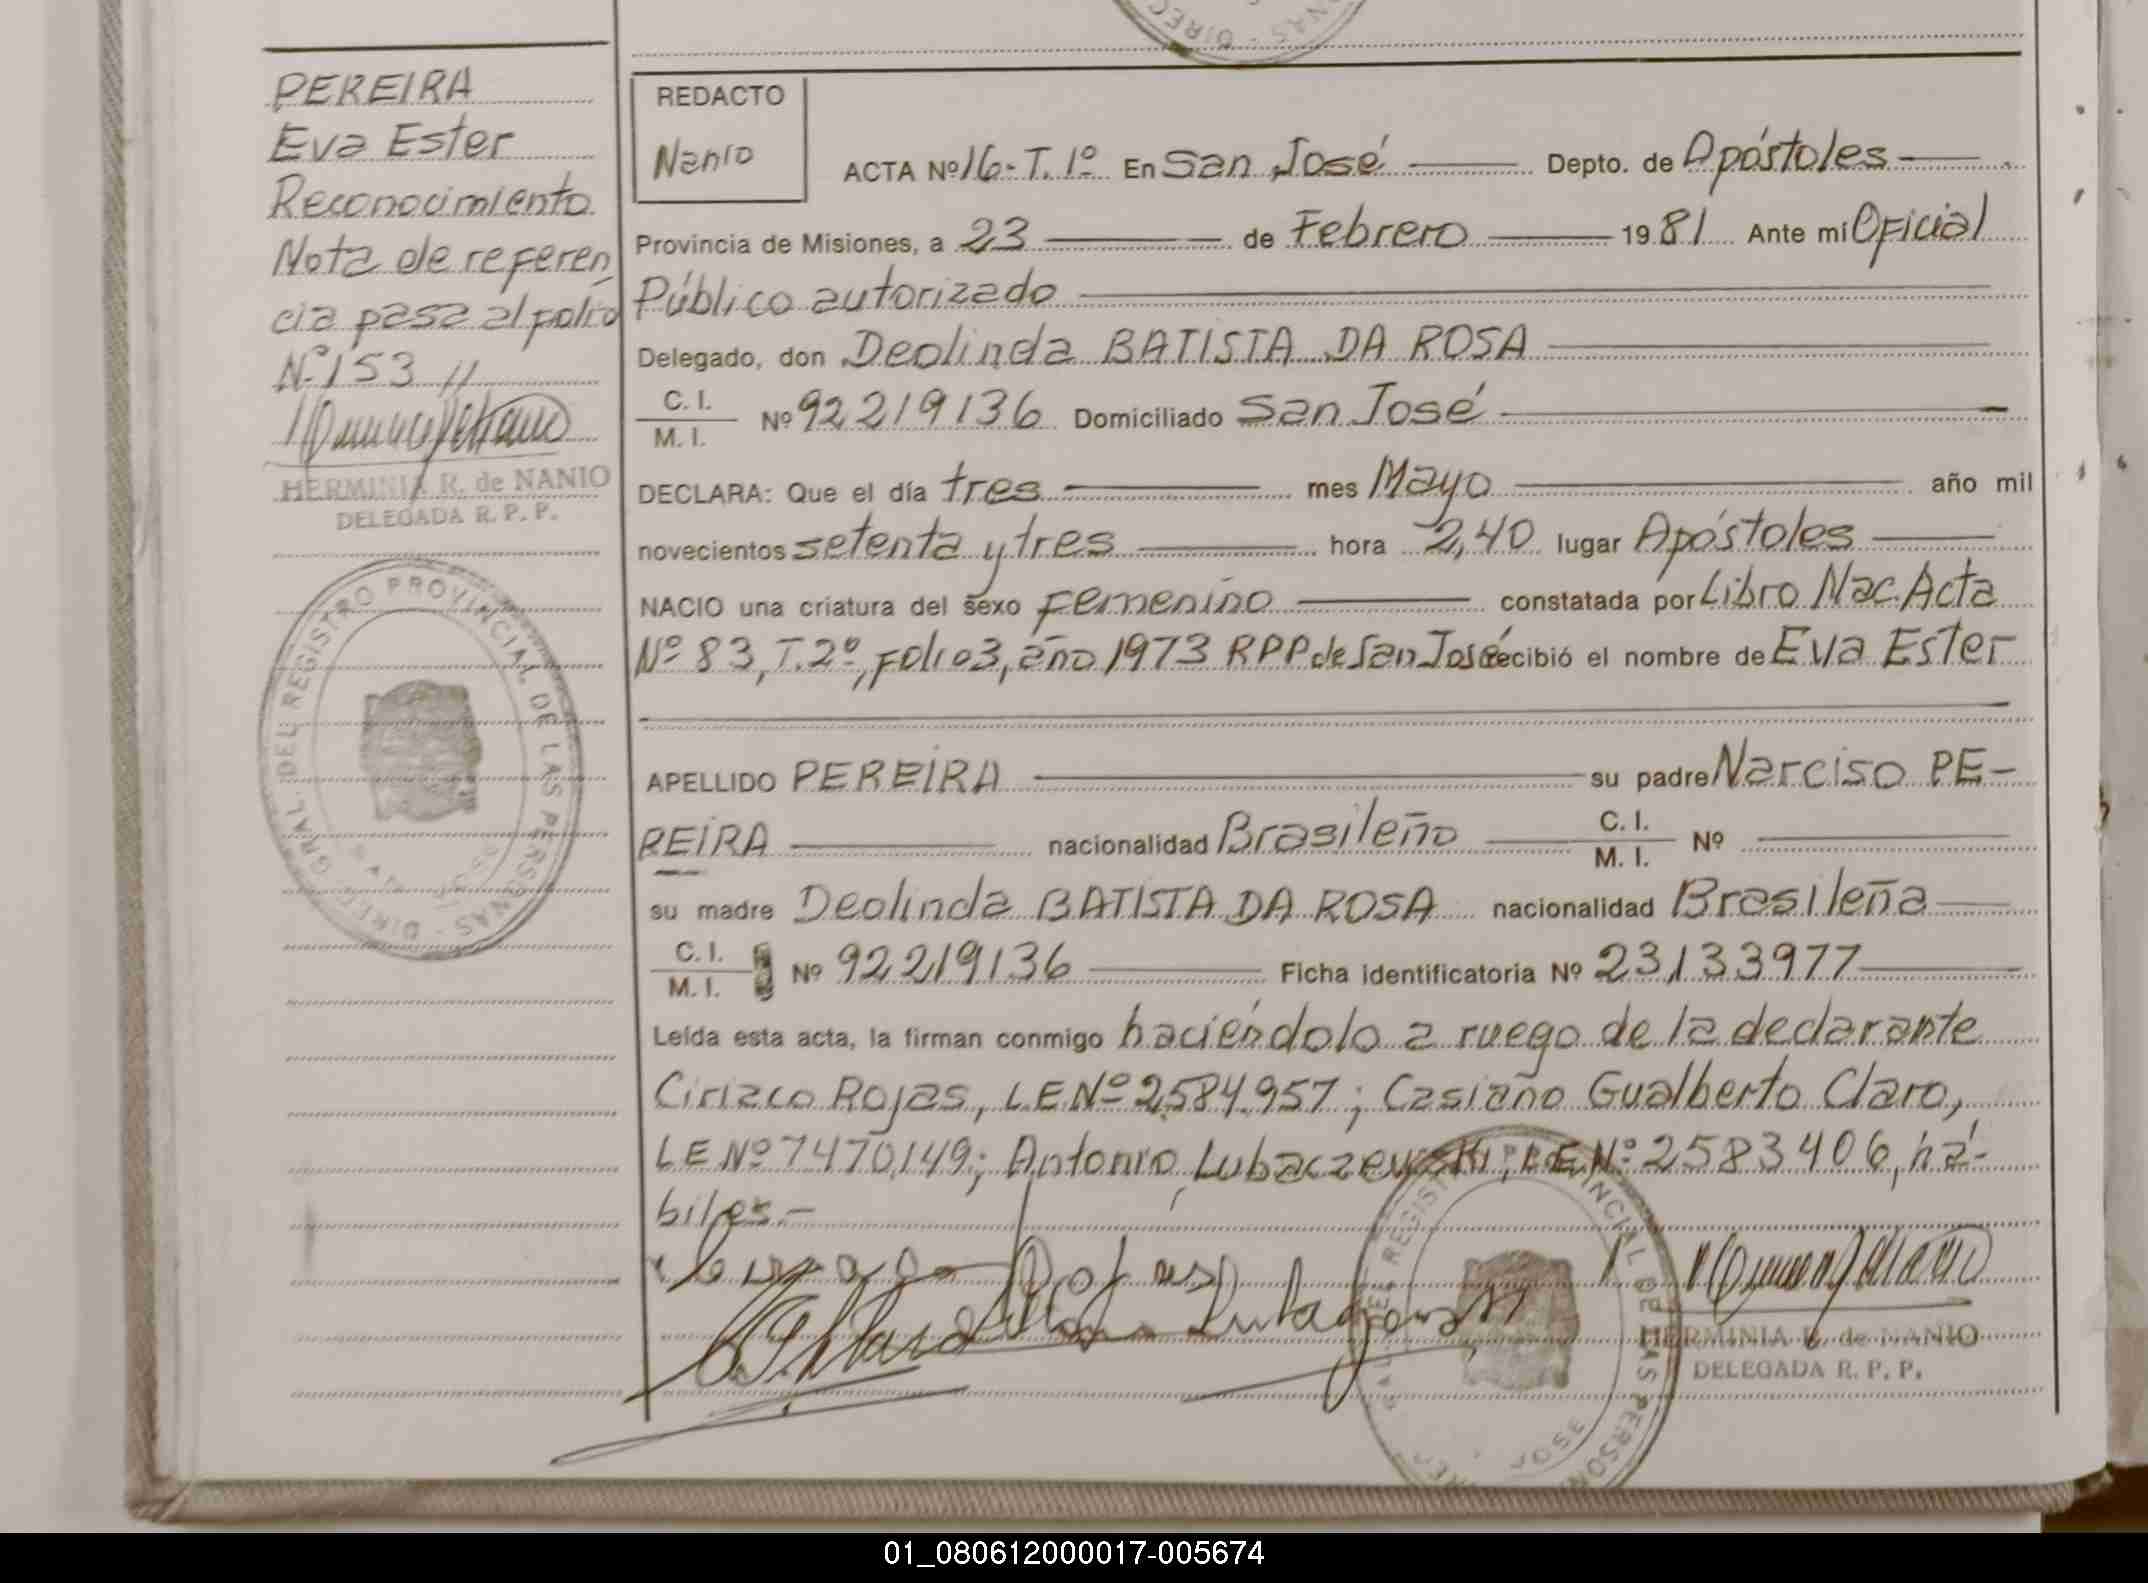 PEREIRA
Eva Ester
Reconocimiento
Nota de referen
cia pasa al folio
Nº 153 //
HERMINIA R. de NANIO
DELEGADA R. P. P.
DIREC GRAL. DEL REGISTRO PROVINCIAL DE LAS PERSONAS
REDACTO
Nanio
ACTA Nº 16-T.1º En San José Depto. de Apóstoles
Provincia de Misiones, a 23 de Febrero 1981 Ante mi Oficial
Público autorizado
Delegado, don Deolinda BATISTA DA ROSA
C. I.
M. I. Nº 92219136 Domiciliado San José
DECLARA: Que el día tres mes Mayo año mil
novecientos setenta y tres hora 2,40 lugar Apóstoles
NACIO una criatura del sexo femenino constatada por Libro Nac. Acta
Nº 83, T.2º, folio 3, año 1973 RPP de San José recibió el nombre de Eva Ester
APELLIDO PEREIRA su padre Narciso PE-
REIRA nacionalidad Brasileño C. I.
M. I. Nº
su madre Deolinda BATISTA DA ROSA nacionalidad Brasileña
C. I.
M. I. Nº 92219136 Ficha identificatoria Nº 23,133977
Leída esta acta, la firman conmigo haciéndolo a ruego de la declarante
Ciriaco Rojas, LE Nº 2.584.957; Casiano Gualberto Claro,
LE Nº 7470149; Antonio Lubaczewski, LE Nº 2583406, há-
biles.-
HERMINIA R. de NANIO
DELEGADA R. P. P.
01_080612000017-005674